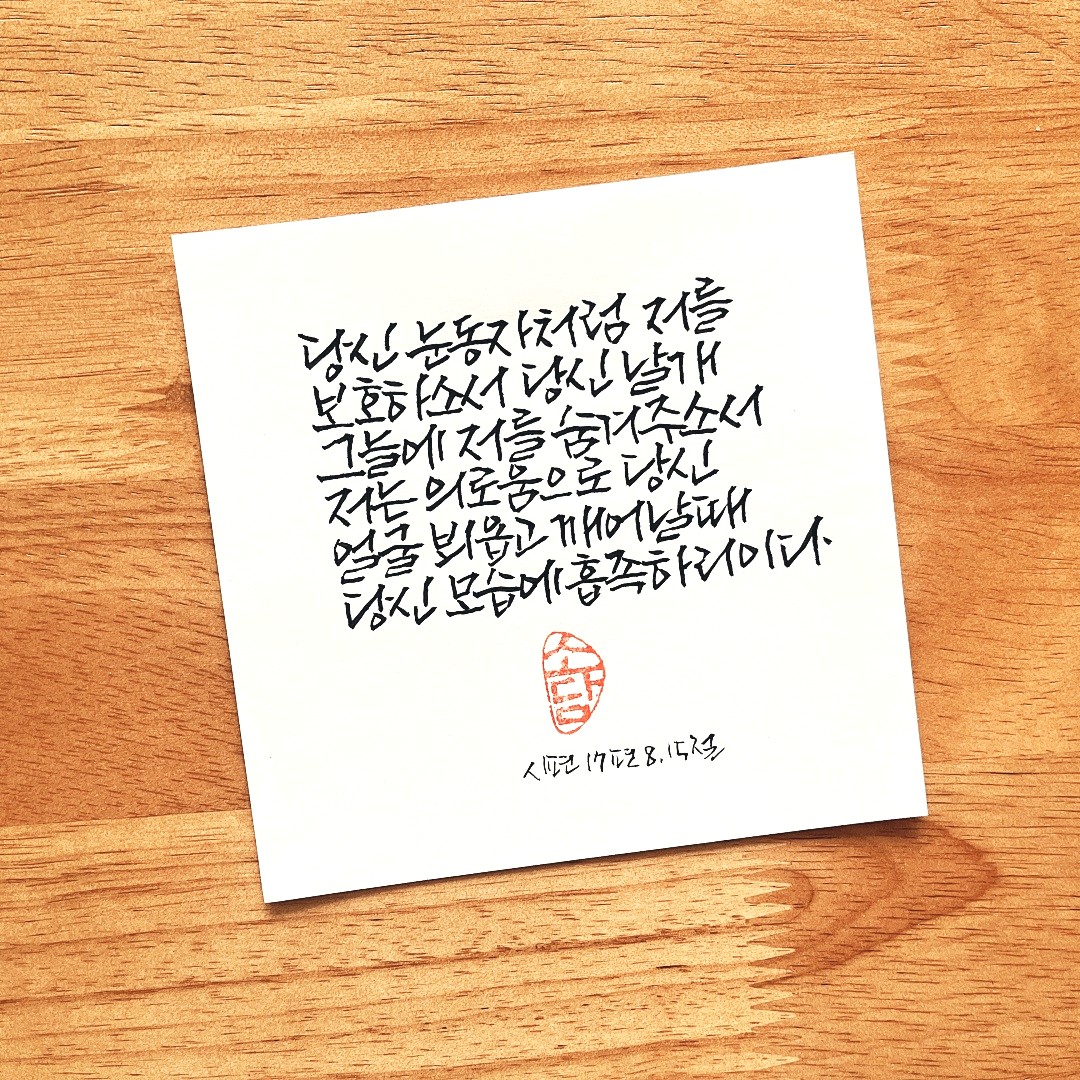 당신 눈동자처럼 저를
보호하소서 당신 날개
그늘에 저를 숨겨주소서
저는 의로움으로 당신
얼굴 뵈옵고 깨어날때
당신 모습에 흡족하리이다.
소담
시편 17편 8, 15절